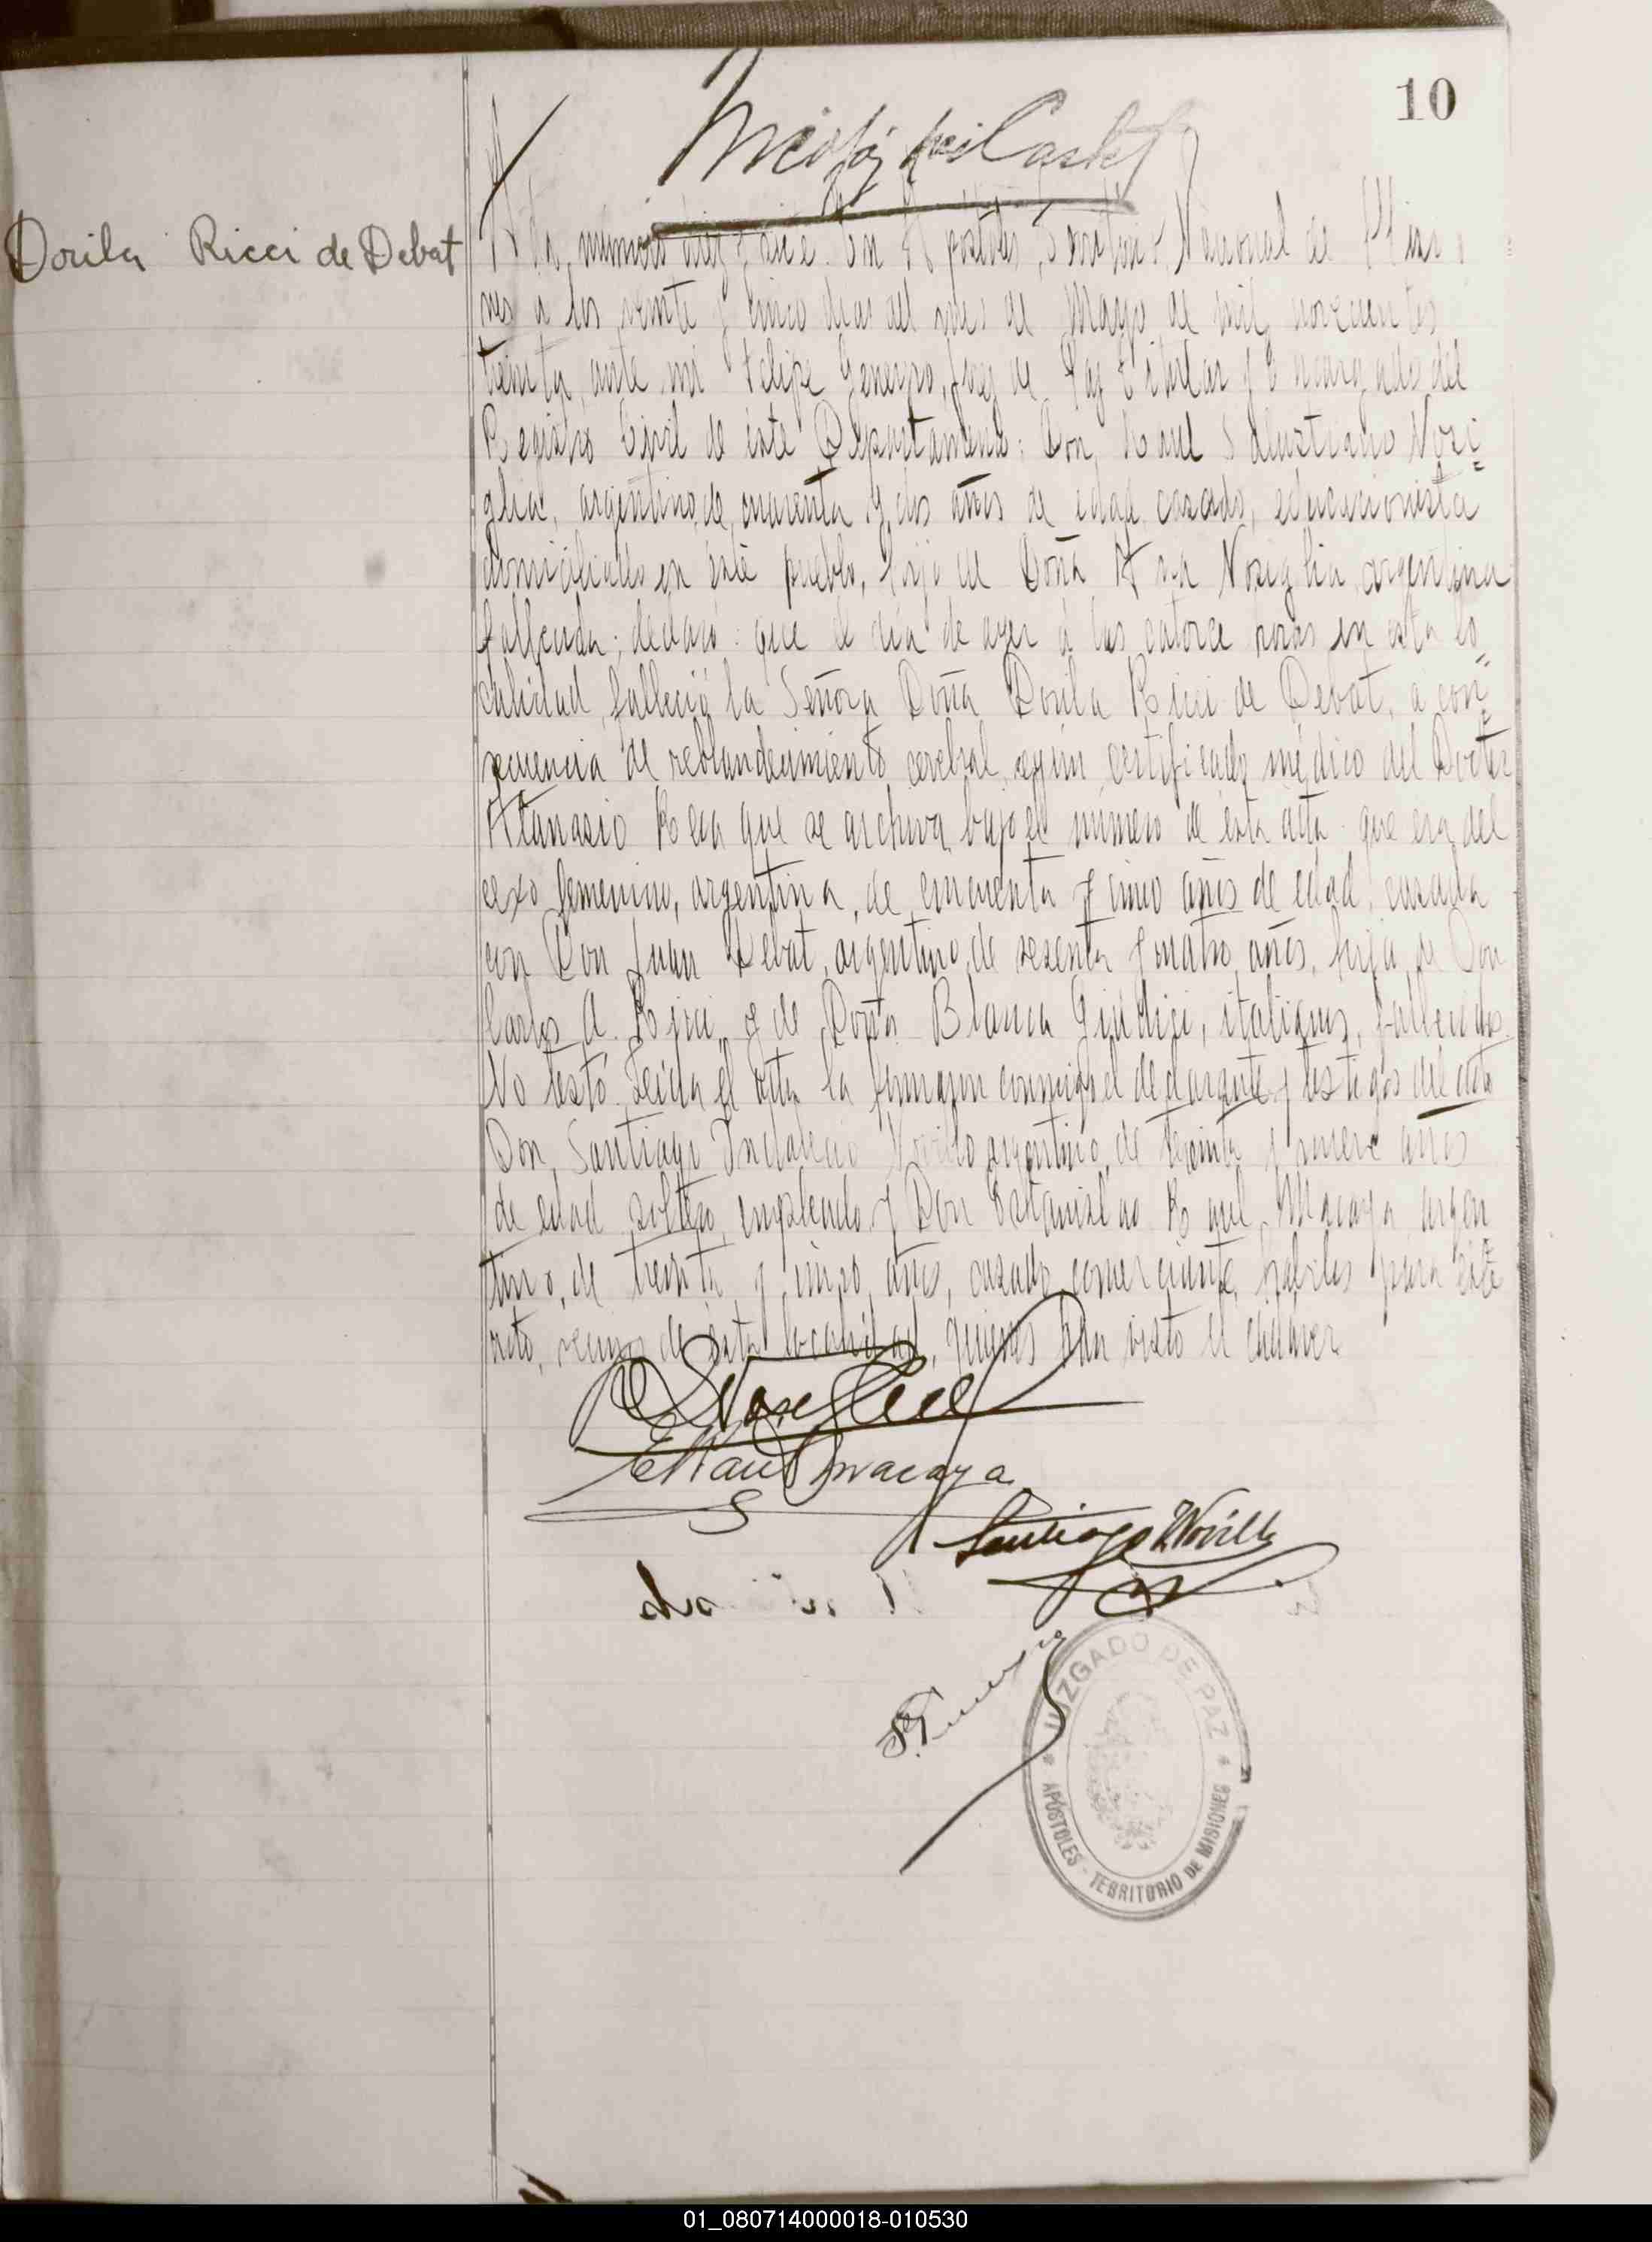 10
Dorila Ricci de Debat
Acta número diez y seis. En Apóstoles, Territorio Nacional de Misio
nes a los veinte y cinco dias del mes de Mayo de mil novecientos
treinta, ante mi Felipe Generoso, Juez de Paz Titular y Encargado del
Registro Civil de este Departamento: Don Raul Salustiano Nosi=
glia, argentino, de cuarenta y dos años de edad, casado, educacionista
domiciliado en este pueblo, hijo de Doña Ana Nosiglia, argentina
fallecida; declaró: que el dia de ayer á las catorce horas en esta lo=
calidad, falleció la Señora Doña Dorila Ricci de Debat, a con=
secuencia de reblandecimiento cerebral, según certificado médico del Doctor
Atanasio Rea que se archiva bajo el número de esta acta. que era del
sexo femenino, argentina, de cincuenta y cinco años de edad, casada
con Don Juan Debat, argentino, de sesenta y cuatro años, hija de Don
Carlos A. Ricci y de Doña Blanca Giudici, italianos, fallecidos.
No testó. Leida el acta la firmaron conmigo el declarante y testigos del acta
Don Santiago Indalecio Novillo argentino, de treinta y nueve años
de edad soltero, empleado y Don Estanislao Raul Macaya argen=
tino, de treinta y cinco años, casado, comerciante, habiles para este
acto, vecinos de esta localidad, quienes han visto el cadaver.
R S Nosiglia
E Raul Macaya
Santiago I. Novillo
JUZGADO DE PAZ
APÓSTOLES - TERRITORIO DE MISIONES
01_080714000018-010530